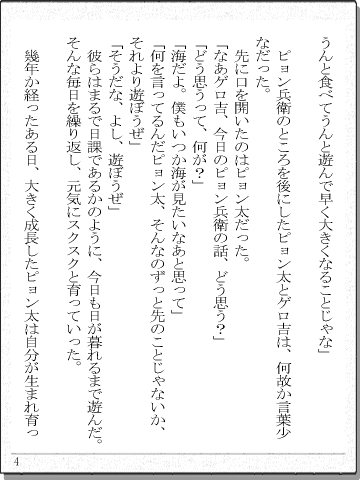 うんと食べてうんと遊んで早く大きくなることじゃな」
ピョン兵衛のところを後にしたピョン太とゲロ吉は、何故か言葉少
なだった。
先に口を開いたのはピョン太だった。
「なあゲロ吉、今日のピョン兵衛の話、どう思う？」
「どう思うって、何が？」
「海だよ。僕もいつか海が見たいなあと思って」
「何を言ってるんだピョン太、そんなのずっと先のことじゃないか、
それより遊ぼうぜ」
「そうだな、よし、遊ぼうぜ」
彼らはまるで日課であるかのように、今日も日が暮れるまで遊んだ。
そんな毎日を繰り返し、元気にスクスクと育っていった。
幾年か経ったある日、大きく成長したピョン太は自分が生まれ育っ
4